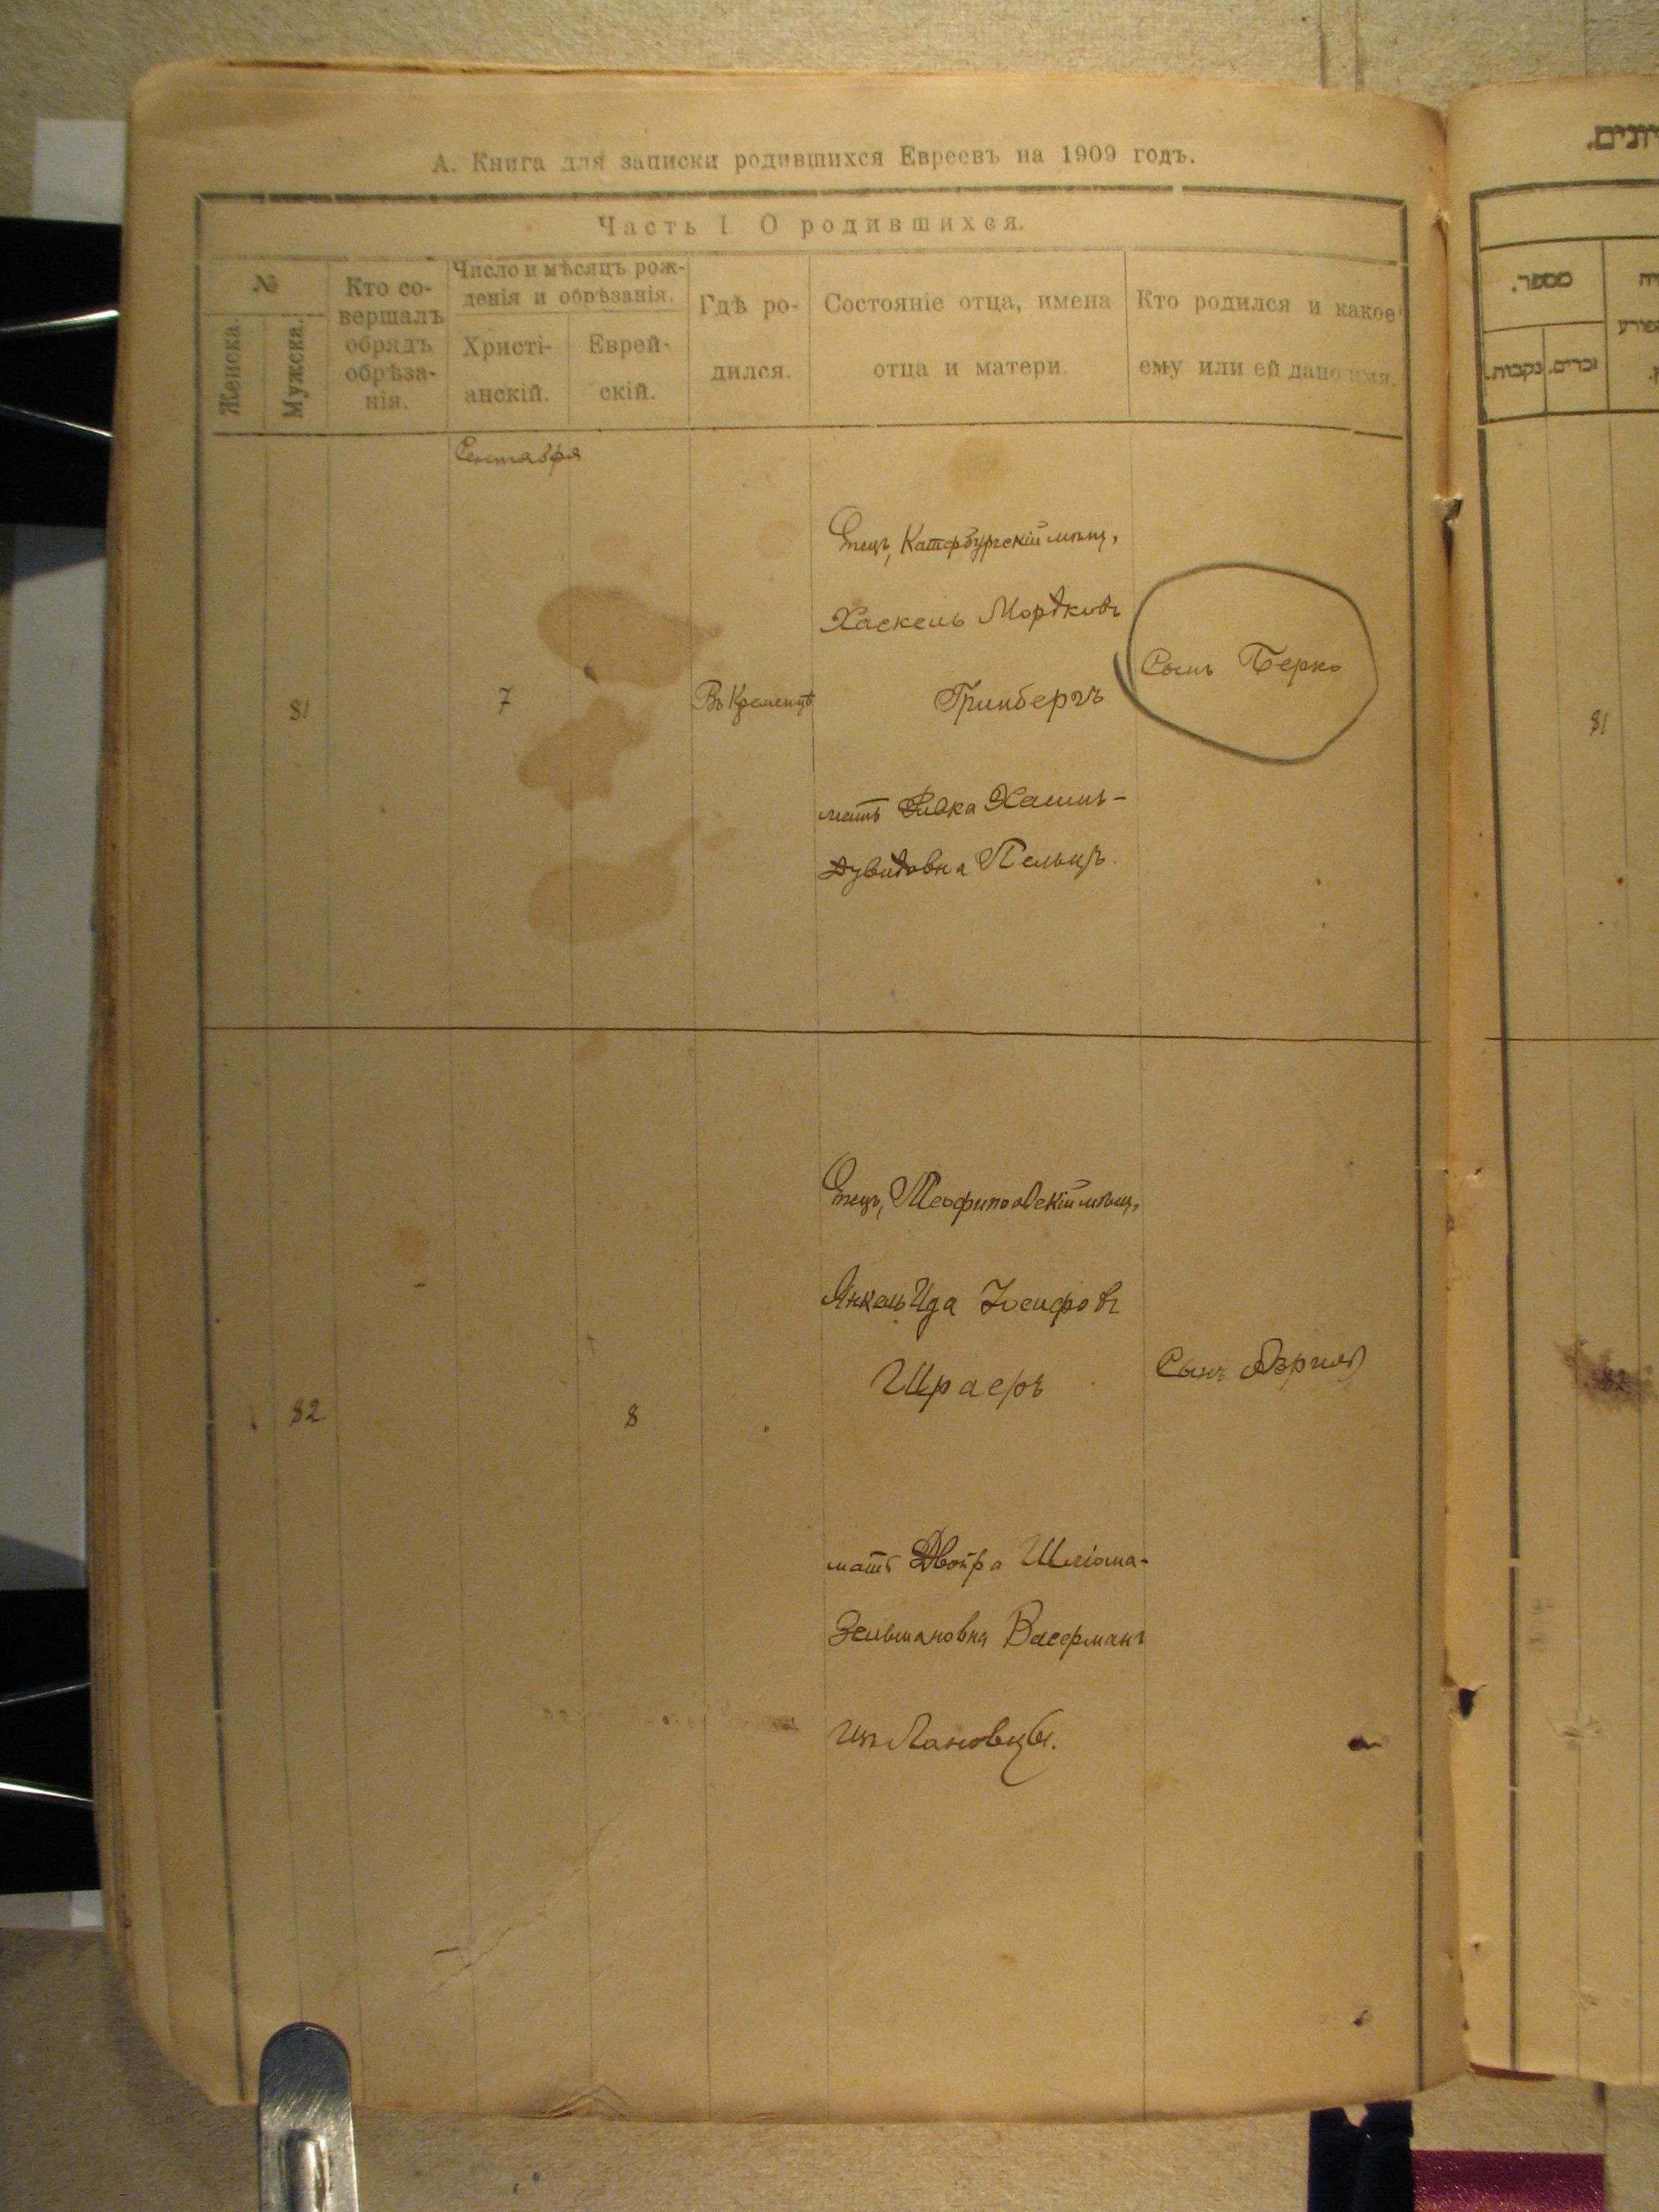 А. Книга для записки родившихся Евреевъ на 1909 годъ.
Часть I О родившихся.
№
Женска.
Мужска.
Кто со-
вершалъ
обрядъ
обрѣза-
нія.
Число и мѣсяцъ рож-
денія и обрѣзанія.
Христі-
анскій.
Еврей-
скій.
Гдѣ ро-
дился.
Состояніе отца, имена
отца и матери.
Кто родился и какое
ему или ей дано имя.
Сентября
81
7
Въ Кременцѣ
Отецъ, Катербургскій мѣщ.
Хаскель Мордковъ
Гринбергъ
мать Ривка Хаимъ-
Дувидовна Пельцъ
Сынъ Берко
82
8
Отецъ, Теофипольскій мѣщ.
Янкель Ида Іосифовъ
Шраеръ
мать Двойра Шліома-
Зельмановна Васерманъ
изъ Лановцы.
Сынъ
מספר.
נקבות.
זכרים.
81
82